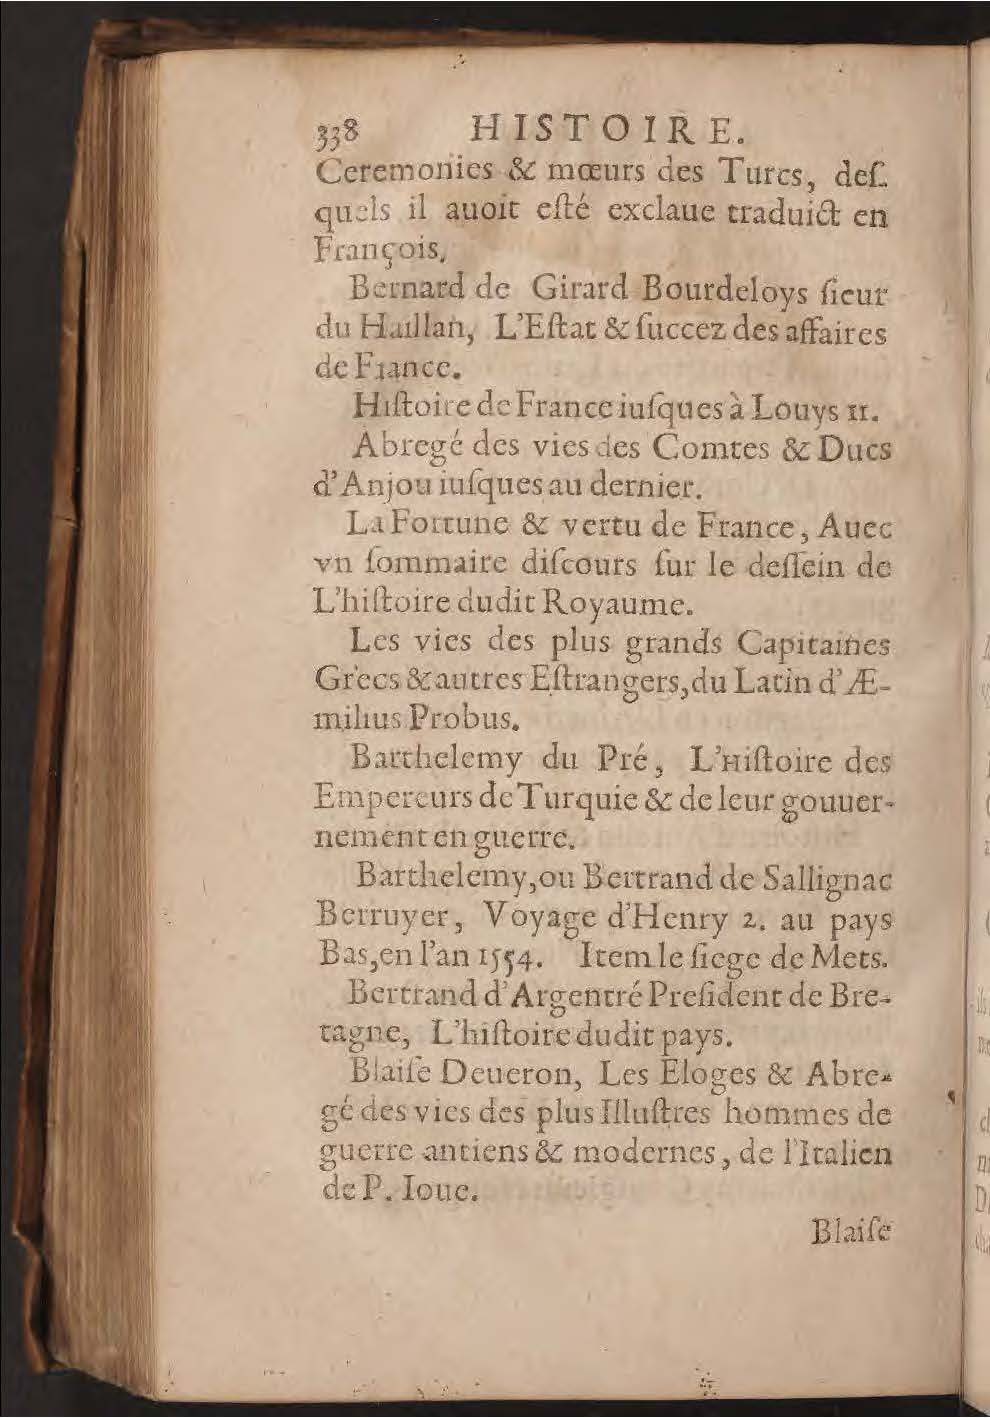 338 HISTOIRE.
Ceremonies & mœurs des Turcs, deſ-
quels il auoit eſté exclaue traduict en
François.
Bernard de Girard Bourdeloys ſieur
du Haillan, L'Eſtat & ſuccez des affaires
de France.
Hiſtoire de France iuſques à Louys 11.
Abregé des vies des Comtes & Ducs
d'Anjou iuſques au dernier.
La Fortune & vertu de France, Auec
vn ſommaire diſcours ſur le deſſein de
L'hiſtoire dudit Royaume.
Les vies des plus grands Capitaines
Grecs & autres Eſtrangers, du Latin d'Æ-
milius Probus.
Barthelemy du Pré, L'Hiſtoire des
Empereurs de Turquie & de leur gouuer-
nement en guerre.
Barthelemy, ou Bertrand de Sallignac
Berruyer, Voyage d'Henry 2. au pays
Bas, en l'an 1554. Item le ſiege de Mets.
Bertrand d'Argentré Preſident de Bre-
tagne, L'hiſtoire dudit pays.
Blaiſe Deueron, Les Eloges & Abre-
gé des vies des plus Illuſtres hommes de
guerre antiens & modernes, de l'Italien
de P. Ioue.
Blaiſe